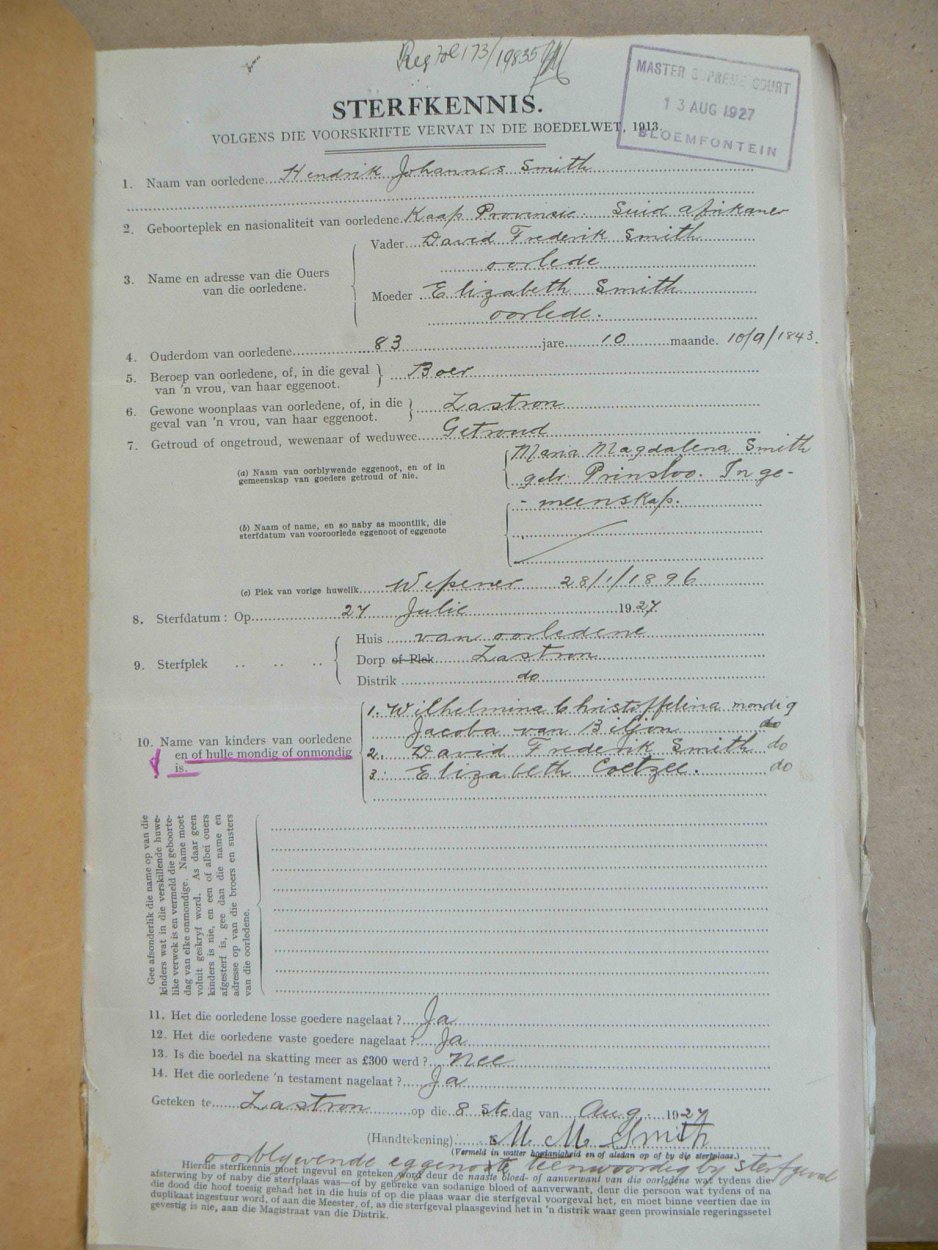 Reg fol 173/19835
MASTER SUPREME COURT
13 AUG 1927
BLOEMFONTEIN
STERFKENNIS.
VOLGENS DIE VOORSKRIFTE VERVAT IN DIE BOEDELWET, 1913.
1. Naam van oorledene Hendrik Johannes Smith
2. Geboorteplek en nasionaliteit van oorledene Kaap Provinsie. Suid Afrikaner
3. Name en adresse van die Ouers van die oorledene.
Vader David Frederik Smith
oorlede
Moeder Elizabeth Smith
oorlede.
4. Ouderdom van oorledene 83 jare 10 maande. 10/9/1843.
5. Beroep van oorledene, of, in die geval
van 'n vrou, van haar eggenoot. Boer
6. Gewone woonplaas van oorledene, of, in die
geval van 'n vrou, van haar eggenoot. Zastron
7. Getroud of ongetroud, wewenaar of weduwee Getroud
(a) Naam van oorblywende eggenoot, en of in
gemeenskap van goedere getroud of nie.
Maria Magdalena Smith
geb. Prinsloo. In ge-
-meenskap.
(b) Naam of name, en so naby as moontlik, die
sterfdatum van vooroorlede eggenoot of eggenote
(c) Plek van vorige huwelik Wepener 28/1/1896
8. Sterfdatum: Op 27 Julie 1927
9. Sterfplek
Huis van oorledene
Dorp of Plek Zastron
Distrik do
10. Name van kinders van oorledene
en of hulle mondig of onmondig
is.
1. Wilhelmina Christoffelina mondig
Jacoba van Biljon do
2. David Frederik Smith do
3. Elizabeth Coetzee. do
Gee afsonderlik die name op van die
kinders wat in die verskillende huwe-
like verwek is en vermeld die geboorte-
dag van elke onmondige. Name moet
voluit geskryf word. As daar geen
kinders is nie, en een of albei ouers
afgesterf is, gee dan die name en
adresse op van die broers en susters
van die oorledene.
11. Het die oorledene losse goedere nagelaat? Ja
12. Het die oorledene vaste goedere nagelaat? Ja
13. Is die boedel na skatting meer as £300 werd? Nee
14. Het die oorledene 'n testament nagelaat? Ja
Geteken te Zastron op die 8ste dag van Aug. 1927
(Handtekening) M. M. Smith
(Vermeld in watter hoedanigheid en of alsdan op of by die sterfplaas.)
oorblywende eggenoote teenwoordig by sterfgeval
Hierdie sterfkennis moet ingevul en geteken word deur de naaste bloed- of aanverwant van die oorledene wat tydens die
afsterwing by of naby die sterfplaas was—of by gebreke van sodanige bloed of aanverwant, deur die persoon wat tydens of na
die dood die hoof toesig gehad het in die huis of op die plaas waar die sterfgeval voorgeval het, en moet binne veertien dae in
duplikaat ingestuur word, of aan die Meester, of, as die sterfgeval plaasgevind het in 'n distrik waar geen provinsiale regeringssetel
gevestig is nie, aan die Magistraat van die Distrik.